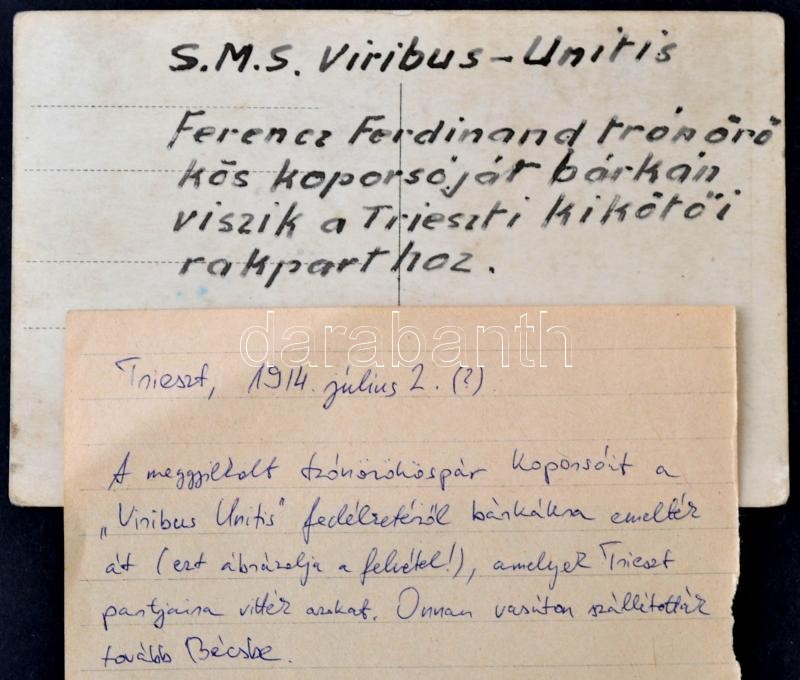 S.M.S. Viribus-Unitis
Ferencz Ferdinand trónörö
kös koporsóját bárkán
viszik a Trieszti kikötői
rakparthoz.
darabanth
Trieszt, 1914. július 2. (?)
A meggyilkolt trónörököspár koporsóit a
„Viribus Unitis" fedélzetéről bárkákra emelték
át (ezt ábrázolja a felvétel!), amelyek Trieszt
partjaira vitték azokat. Onnan vasúton szállították
tovább Bécsbe.